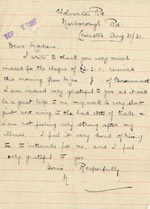 Wolverton Rd.
Narborough Rd
Leicester Aug 31/31.
SEP 1931
Dear Madam,
I write to thank you very much
indeed for the cheque of received
this morning from Miss of Bournemouth
I am indeed very grateful to you as it will
be a great help to me, my work is very short
just now owing to the bad state of trade &
I am not feeling very strong after my
illness. I feel it very kind of Miss
to intercede for me, and I feel
very grateful to you.
Yours Respectfully.